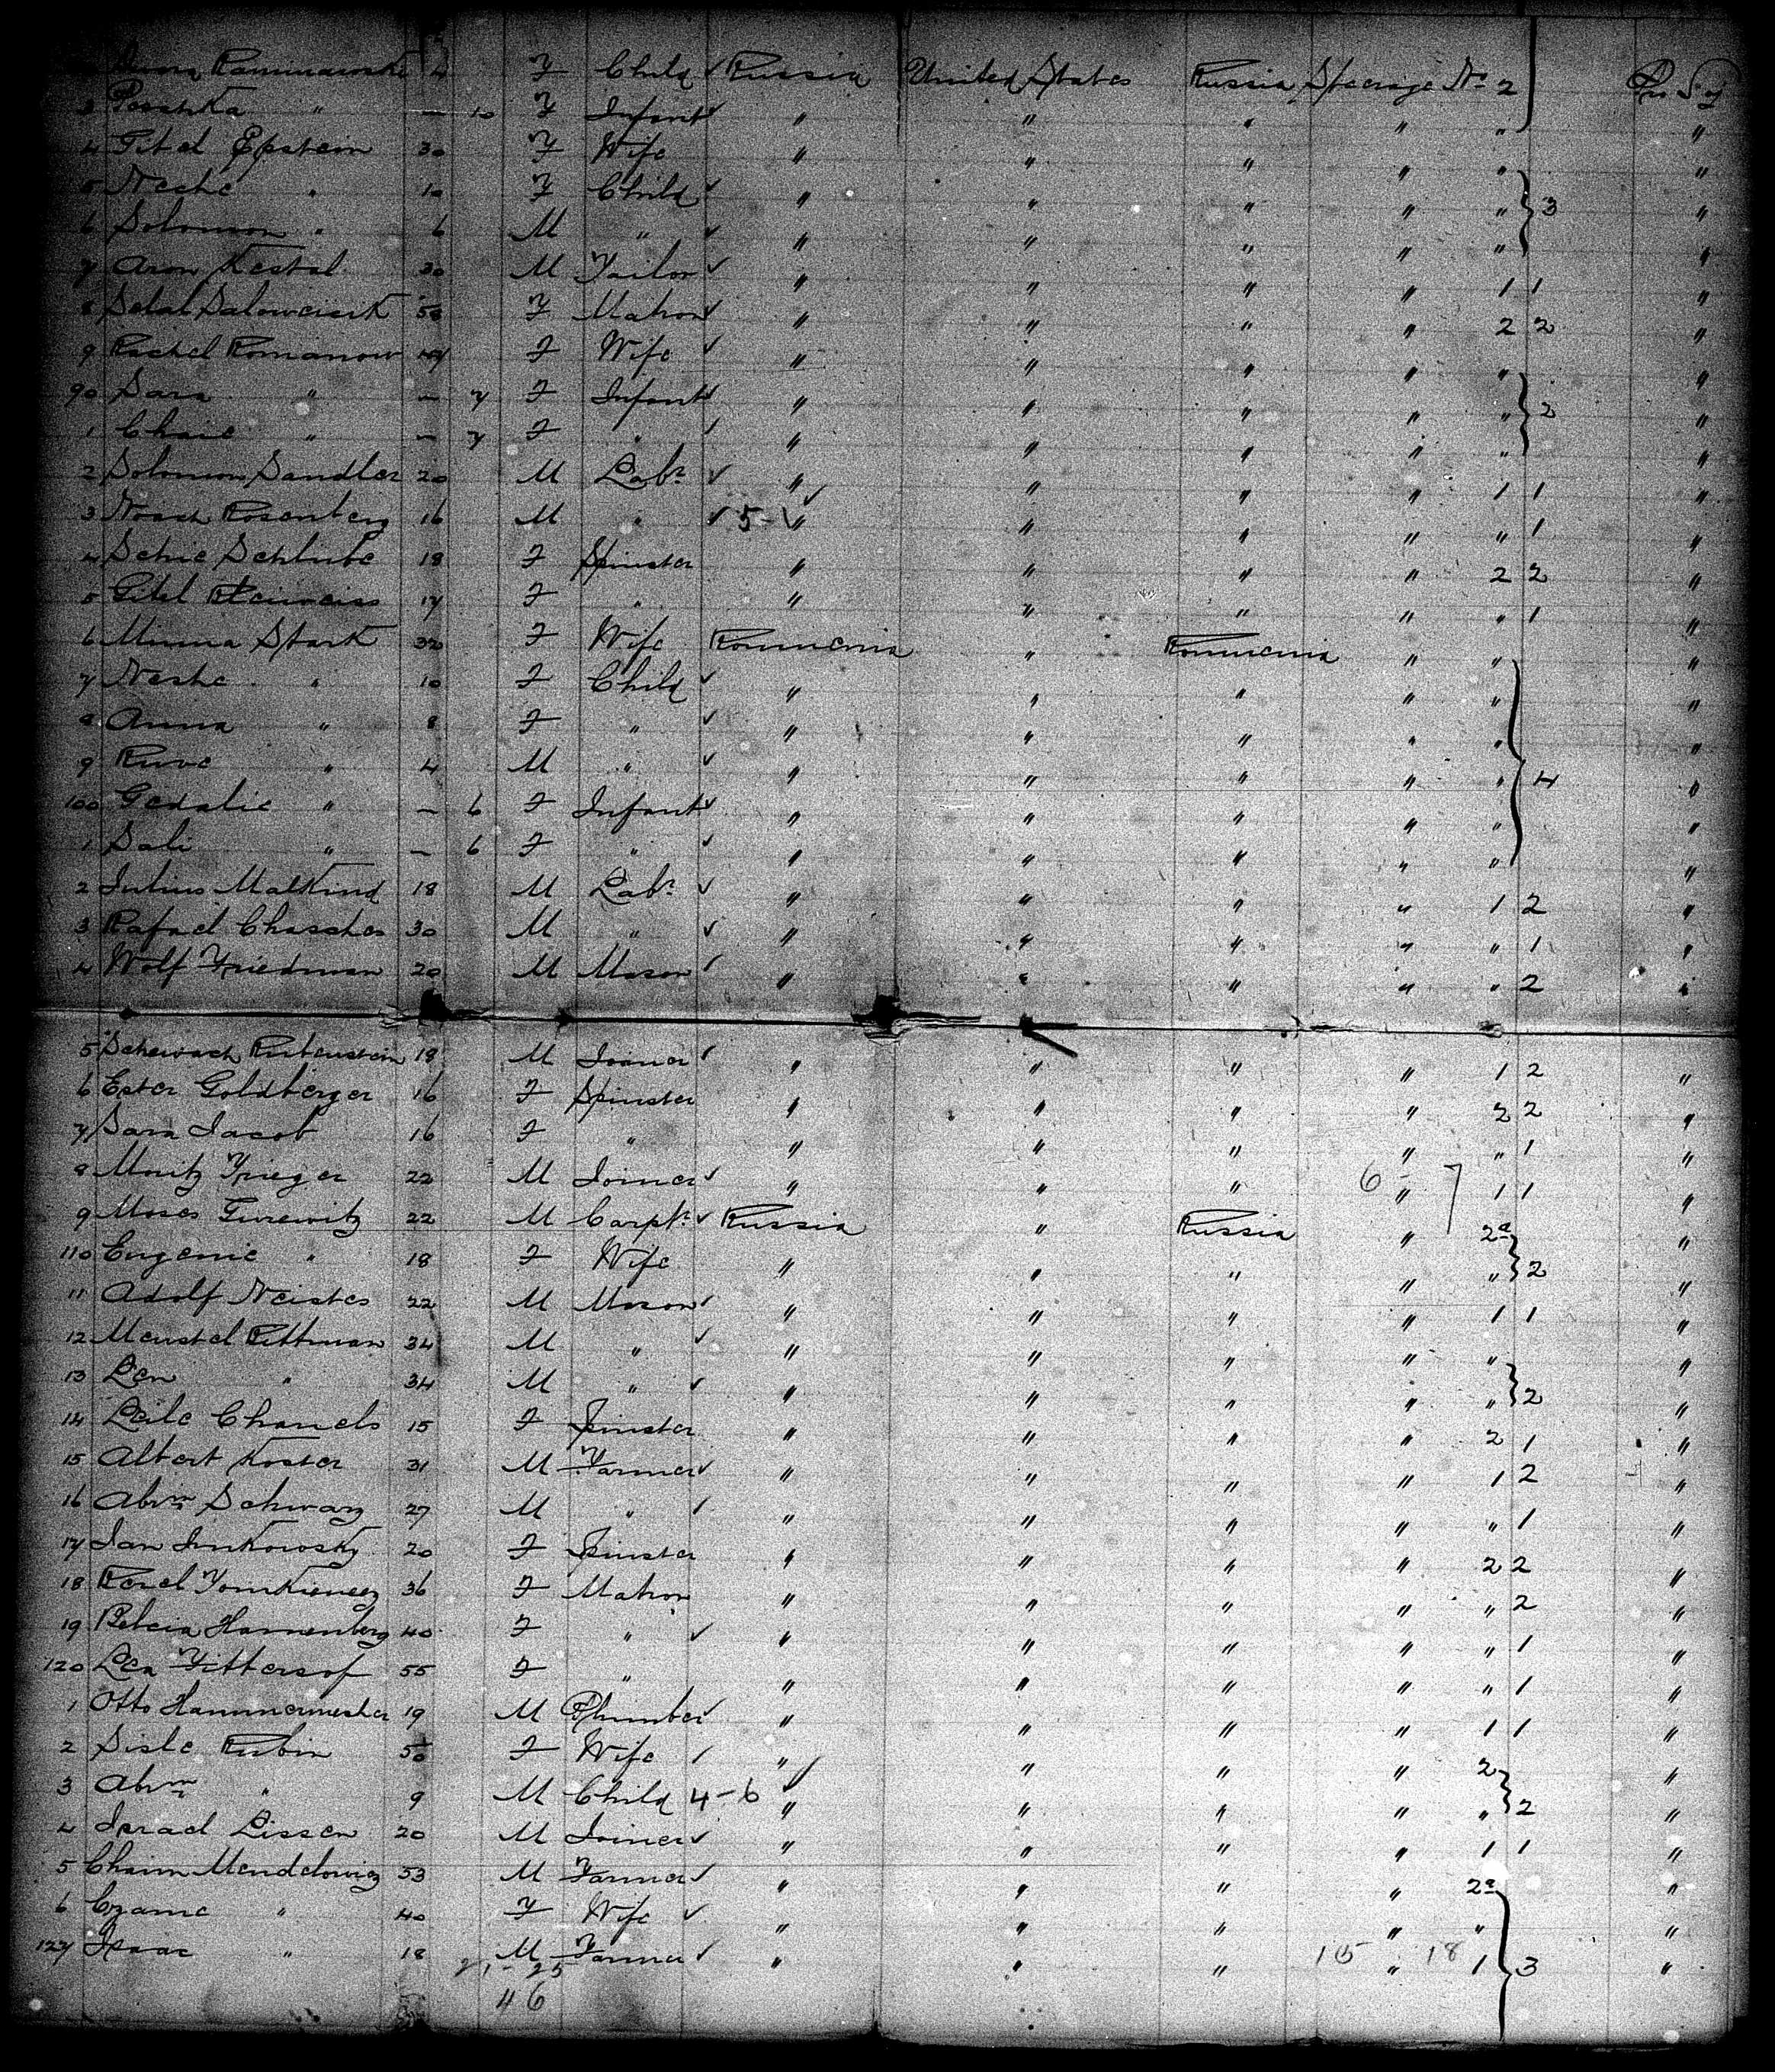 Kaminawski 4 F Child ✓ Russia United States Russia Steerage No 2
3 " — 10 F Infant ✓ " " " " " "
4 Gitel Epstein 30 F Wife " " " " " "
5 Neshe " 10 F Child ✓ " " " " " 3 "
6 Solomon " 6 M " ✓ " " " " " "
7 Aron Kestal 30 M Tailor ✓ " " " " 1 1 "
8 Salowcisik 58 F Matron ✓ " " " " 2 2 "
9 Rachel Romanow F Wife ✓ " " " " " "
90 Sara " — 7 F Infant ✓ " " " " " 2 "
1 Chaie " — 7 F " ✓ " " " " " "
2 Solomon Sandler 20 M Labr ✓ " " " " 1 1 "
3 Noach Rosenberg 16 M " ✓ 5 - ✓ " " " " " 1 "
4 Schie Schlube 18 F Spinster " " " " 2 2 "
5 Gitel 17 F " " " " " " 1 "
6 Minna Stark 32 F Wife Roumenia " Roumenia " " "
7 Neshe " 10 F Child ✓ " " " " " "
8 Anna " 8 F " ✓ " " " " " "
9 Ruve " 4 M " ✓ " " " " " 4 "
100 Gedalie " — 6 F Infant ✓ " " " " " "
1 Sali " — 6 F " ✓ " " " " " "
2 Julius Malkind 18 M Labr ✓ " " " " 1 2 "
3 Rafael Chasches 30 M " ✓ " " " " " 1 "
4 Wolf Friedman 20 M Mason ✓ " " " " " 2 "
5 Schewach Rubenstein 18 M Joiner ✓ " " " " 1 2 "
6 Ester Goldberger 16 F Spinster " " " " 2 2 "
7 Sara Jacob 16 F " " " " " " 1 "
8 Moritz Frieger 22 M Joiner ✓ " " " 6 - 7 " 1 1 "
9 Moses Gurewitz 22 M Carptr ✓ Russia " Russia " 2a "
110 Eugenie " 18 F Wife " " " " " 2 "
11 Adolf Neistes 22 M Mason ✓ " " " " 1 1 "
12 Menstel Rittman 34 M " ✓ " " " " " "
13 Len " 34 M " ✓ " " " " " 2 "
14 Leile Chanels 15 F Spinster " " " " 2 1 "
15 Albert Koster 31 M Farmer ✓ " " " " 1 2 "
16 Abrm Schwarz 27 M " ✓ " " " " " 1 "
17 Jan Junkowsky 20 F Spinster " " " " 2 2 "
18 36 F Matron " " " " " 2 "
19 Hannenberg 40 F " ✓ " " " " " 1 "
120 Lea Fittersof 55 F " " " " " " 1 "
1 Otto Hammermesher 19 M Plumber ✓ " " " " 1 1 "
2 Sisle Rubin 50 F Wife ✓ " " " " 2 "
3 Abrm " 9 M Child 4-6 ✓ " " " " " 2 "
4 Israel Lissen 20 M Joiner ✓ " " " " 1 1 "
5 Chaim Mendelowicz 53 M Farmer ✓ " " " " 2a "
6 " 40 F Wife ✓ " " " " " "
127 Isaac " 18 M Farmer ✓ " " " 15 " 18 1 3 "
21 - 25
46